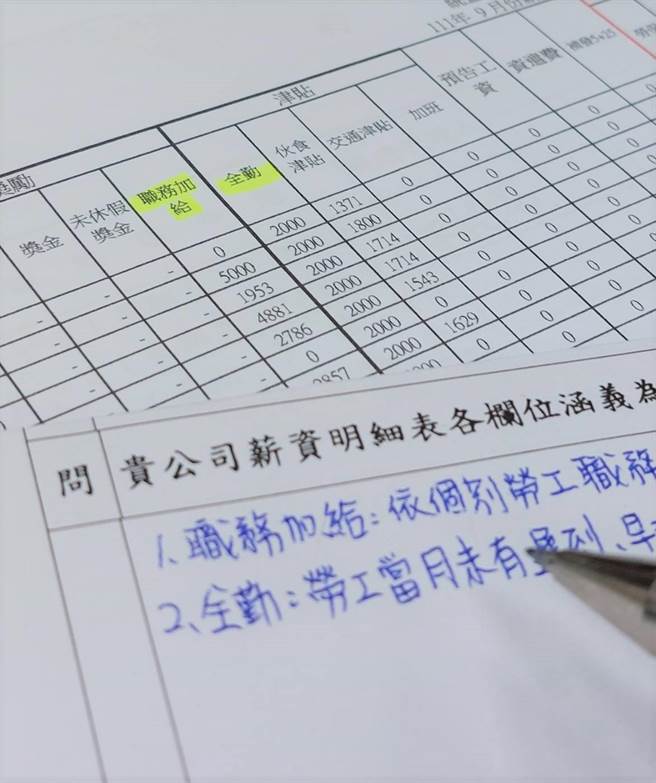 111年 9 月份
津貼
獎金
未休假
獎金
職務加
給
全勤
伙食
津貼
交通津貼
加班
預告工
資
資遣費
- - 0 2000 1371 0 0 0 0
- - - 5000 2000 1800 0 0 0 0
- - - 1953 2000 1714 0 0 0 0
- - - 4881 2000 1714 0 0 0 0
- - - 2786 2000 1543 0 0 0 0
- - 0 2000 1629 0 0 0
2857 2000 0 0 0
問 貴公司薪資明細表各欄位涵義為
1、職務加給：依個別勞工職務
2、全勤：勞工當月未有